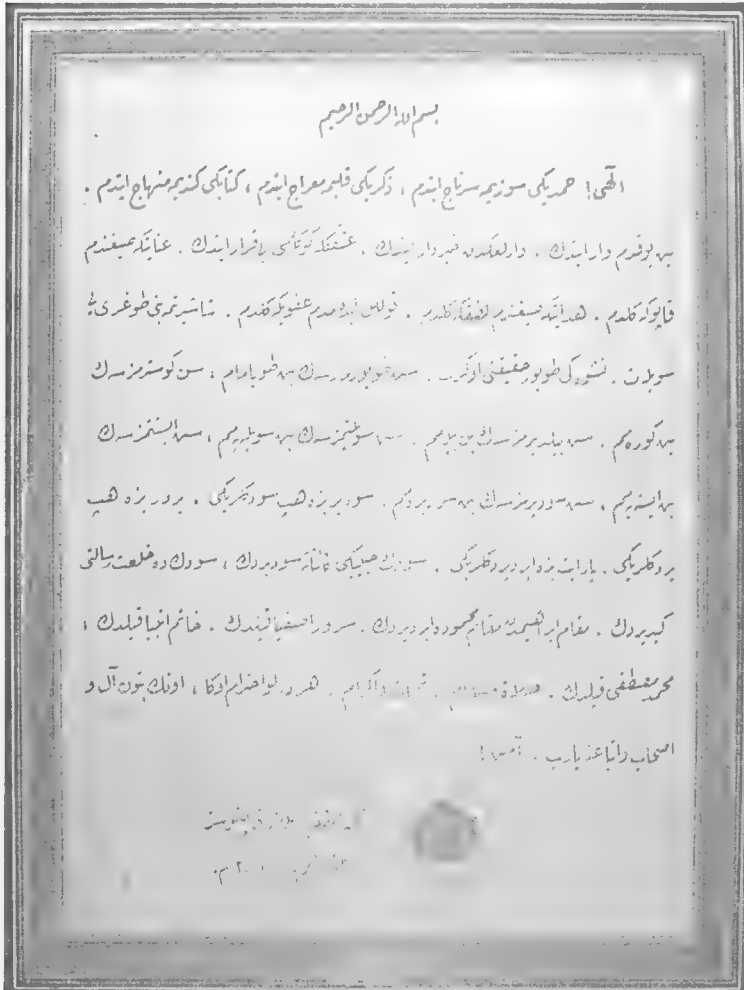 بسم الله الرحمن الرحيم
الٓهی! حمدیكی سوزیمه سرتاج ایتدم ، ذكریكی قلبیمه معراج ایتدم ، كتابكی كندیمه منهاج ایتدم .
بن یوقدم وار ایتدك . وارلغكدن خبردار ایتدك . عشقكله بی قرار ایتدك . عنایتكه صیغندم
قاپوكه كلدم . هدایتكه صیغندم لطفكه كلدم . قوللق ایده‌مدم عفویكه كلدم . شاشیرتمه بنی طوغری یی
سویلت . حقیقتی اوكرت . سن طویورمزسه‌ك بن طویامام ، سن كوسترمزسه‌ك
بن كوره‌مم . سن بیلدیرمزسه‌ك بن بیله‌مم . سن سویلتمزسه‌ك بن سویلیه‌مم ، سن ایستتمزسه‌ك
بن ایستیه‌مم ، سن سودیرمزسه‌ك بن سوه‌مم . سودیر بزه هپ سودكلریكی . یردیر بزه هپ
یردكلریكی . یار ایت بزه ایردیردكلریكی . سودك حبیبیكی كائناته سودیردك ، سودك ده خلعت رسالتی
كیدیردك . مقام ابراهیمدن مقام محموده ایردیردك . سرور اصفیا قیلدك . خاتم انبیا قیلدك ،
محمد مصطفی قیلدك . صلاة و سلام . تحیات و اكرام . هر درلو احترام اوكا ، اونك بتون آل و
اصحاب و اتباعنه یارب . آمین !